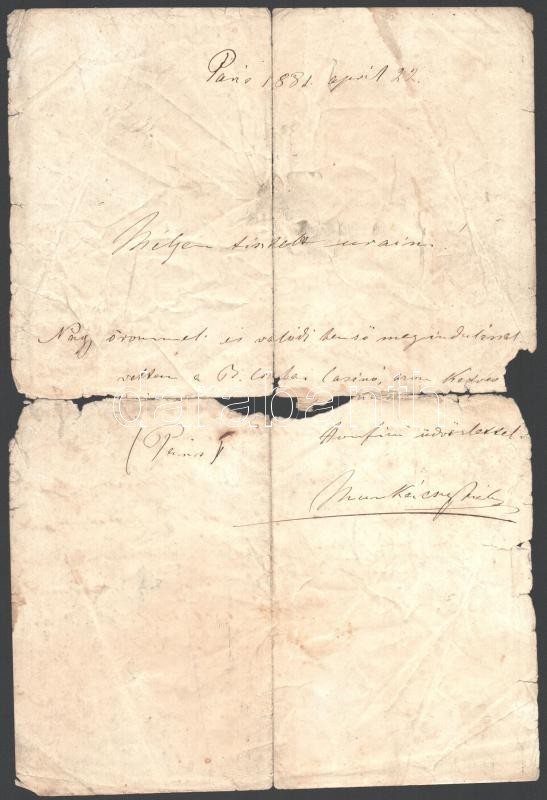 Páris 1881. april 22.
Mélyen tisztelt uraim!
Nagy örömmel és valódi benső megindulással
vettem a B. Csabai Casinó, azon kedves
darabanth
(Páris)
Honfiui üdvözlettel
Munkácsy Mihály